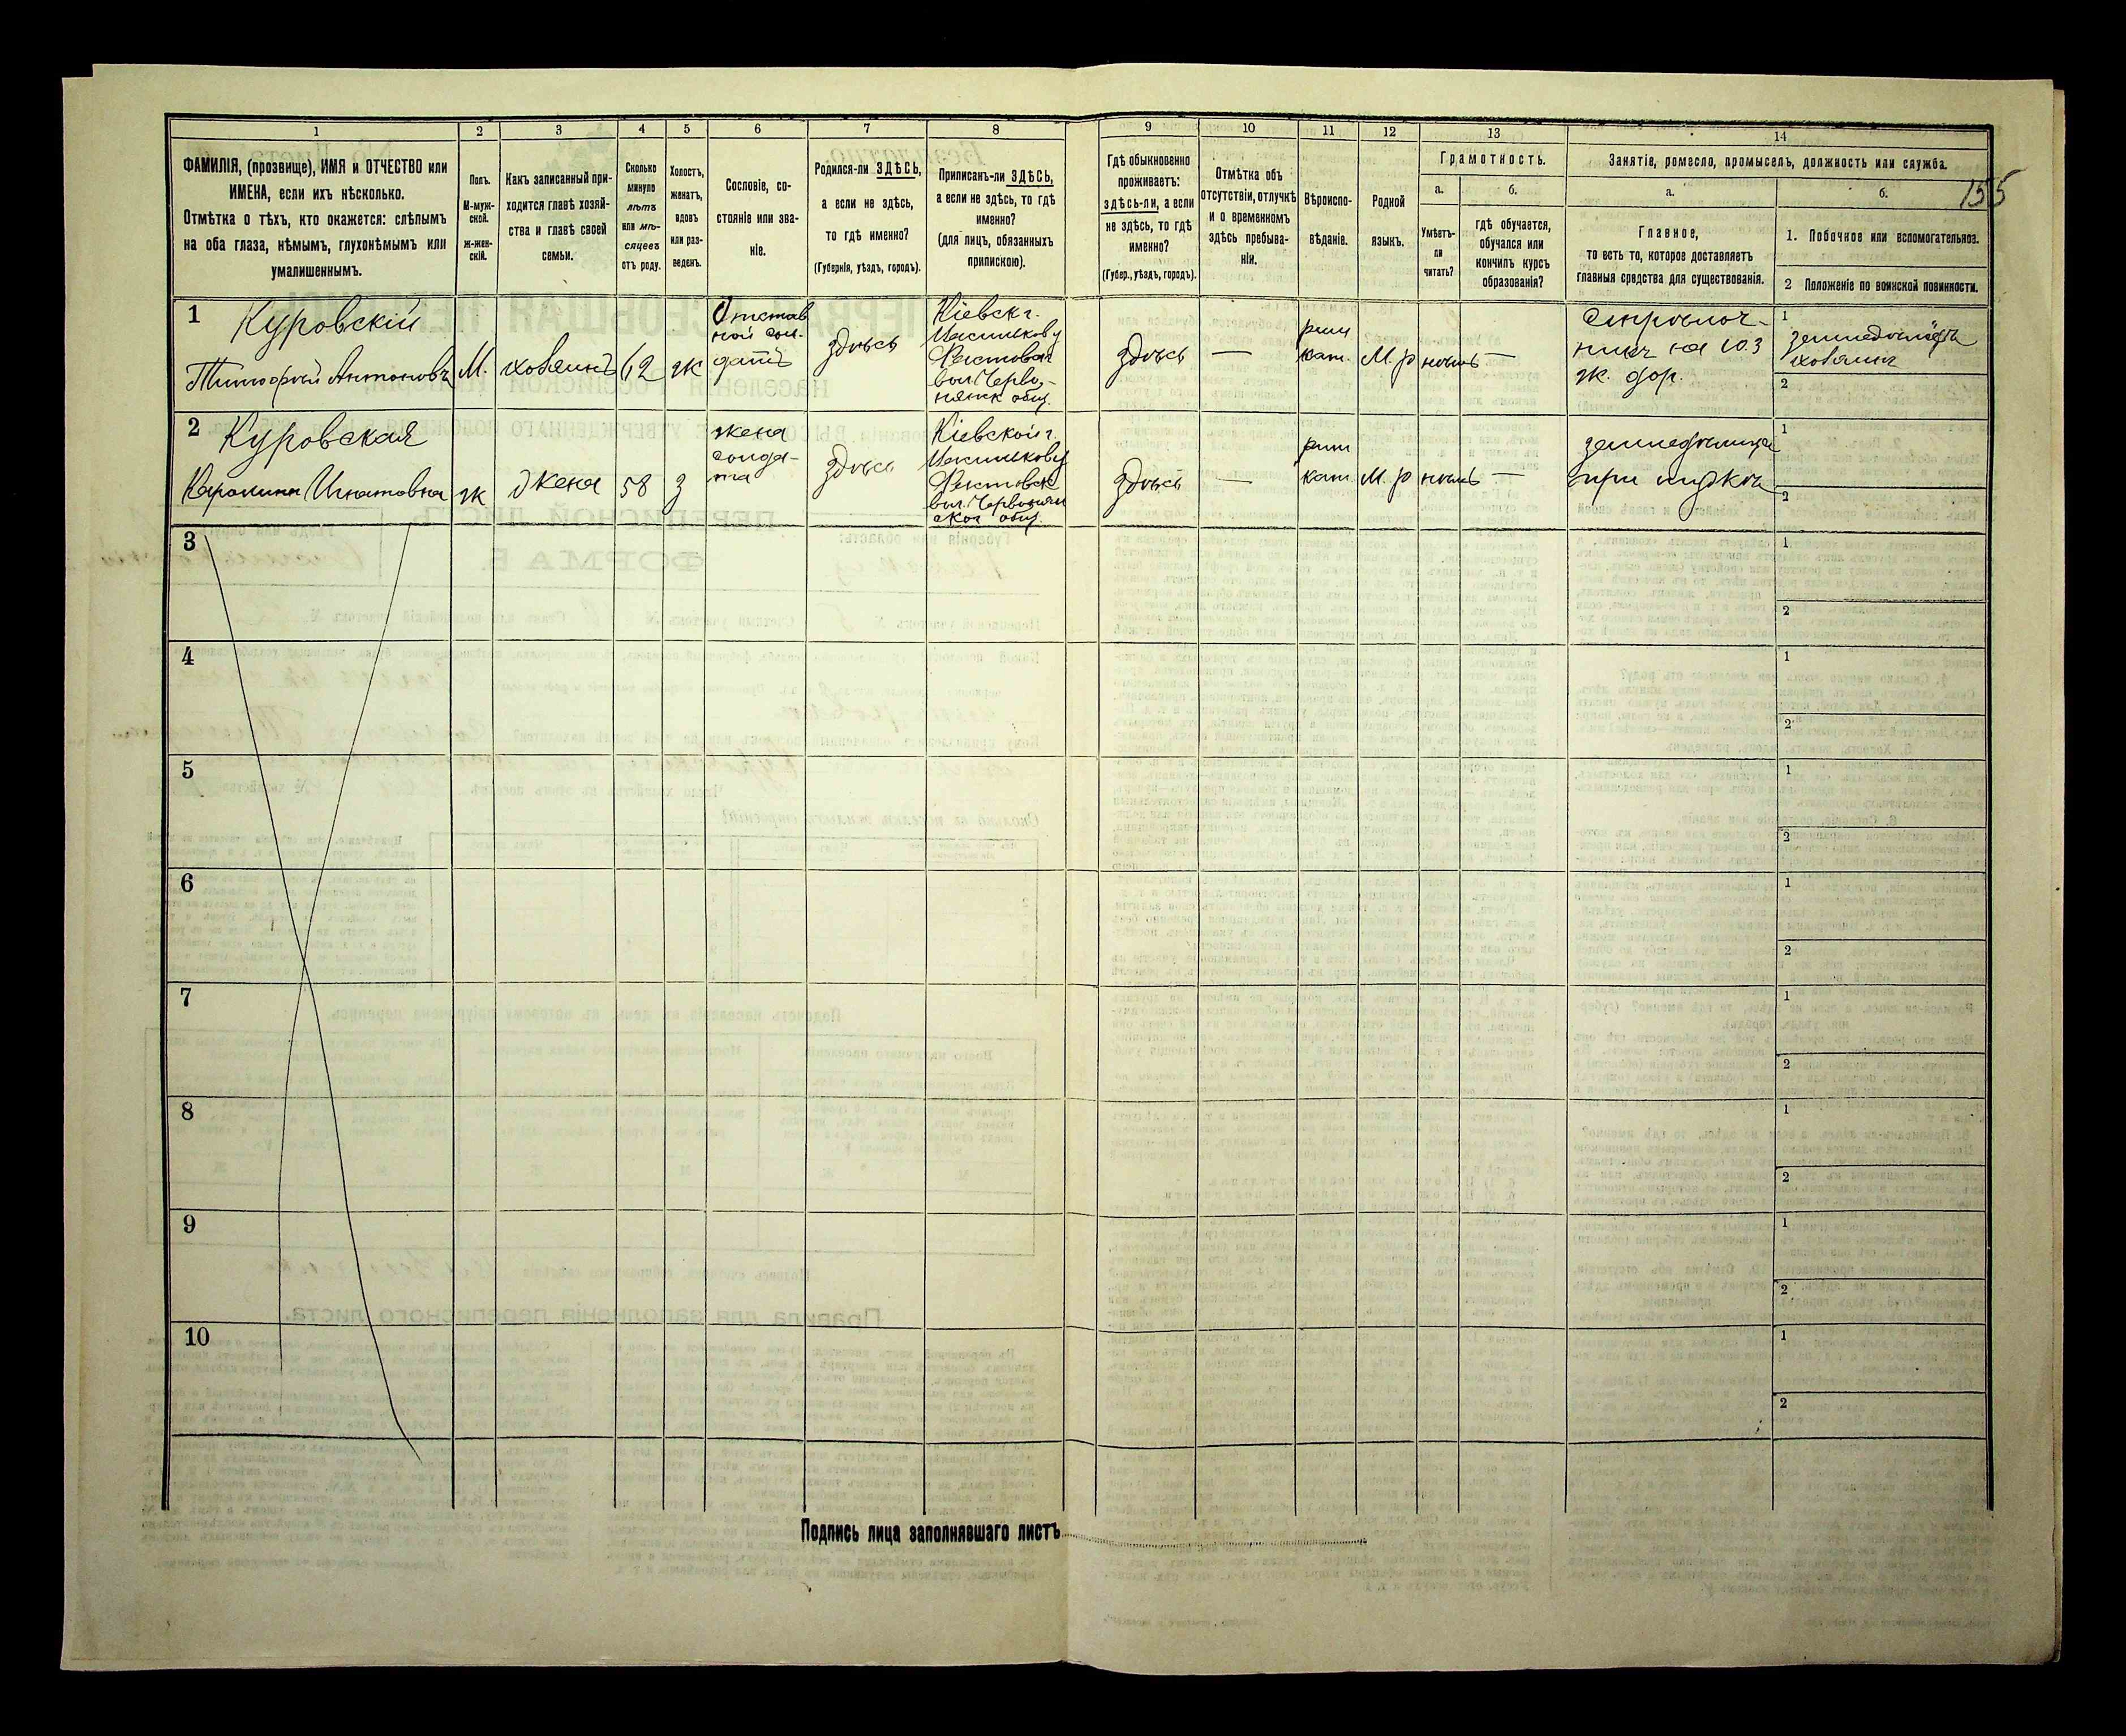 1 2 3 4 5 6 7 8 9 10 11 12 13 14
155
ФАМИЛІЯ, (прозвище), ИМЯ и ОТЧЕСТВО или
ИМЕНА, если ихъ нѣсколько.
Отмѣтка о тѣхъ, кто окажется: слѣпымъ
на оба глаза, нѣмымъ, глухонѣмымъ или
умалишеннымъ.
Полъ.
М-муж-
ской.
ж-жен-
скій.
Какъ записанный при-
ходится главѣ хозяй-
ства и главѣ своей
семьи.
Сколько
минуло
лѣтъ
или мѣ-
сяцевъ
отъ роду.
Холостъ,
женатъ,
вдовъ
или раз-
веденъ.
Сословіе, со-
стояніе или зва-
ніе.
Родился-ли ЗДѢСЬ,
а если не здѣсь,
то гдѣ именно?
(Губернія, уѣздъ, городъ).
Приписанъ-ли ЗДѢСЬ,
а если не здѣсь, то гдѣ
именно?
(для лицъ, обязанныхъ
припискою).
Гдѣ обыкновенно
проживаетъ:
здѣсь-ли, а если
не здѣсь, то гдѣ
именно?
(Губер., уѣздъ, городъ).
Отмѣтка объ
отсутствіи, отлучкѣ
и о временномъ
здѣсь пребыва-
ніи.
Вѣроиспо-
вѣданіе.
Родной
языкъ.
Грамотность.
а.
Умѣетъ-
ли
читать?
б.
гдѣ обучается,
обучался или
кончилъ курсъ
образованія?
Занятіе, ремесло, промыселъ, должность или служба.
а.
Главное,
то есть то, которое доставляетъ
главныя средства для существованія.
б.
1. Побочное или вспомогательное.
2 Положеніе по воинской повинности.
1 Куровскій
Тимофей Антоновъ
М.
хозяинъ
62
ж
Отстав
ной сол-
датъ
здѣсь
Кіевск г.
Васильков у
Фастовск
вол. Черво-
нянск общ.
здѣсь
—
рим
кат.
М. р
нѣтъ
—
на Ю З
ж. дор.
1
земледѣлецъ
хозяинъ
2
2 Куровская
Каролина Игнатовна
ж
Жена
58
з
жена
солда-
та
здѣсь
Кіевской г.
Васильков у
Фастовск
вол. Червонян
ског общ.
здѣсь
—
рим
кат
М. р
нѣтъ
—
земледѣлица
при мужѣ
1
2
3
1
2
4
1
2
5
1
2
6
1
2
7
1
2
8
1
2
9
1
2
10
1
2
Подпись лица заполнявшаго листъ